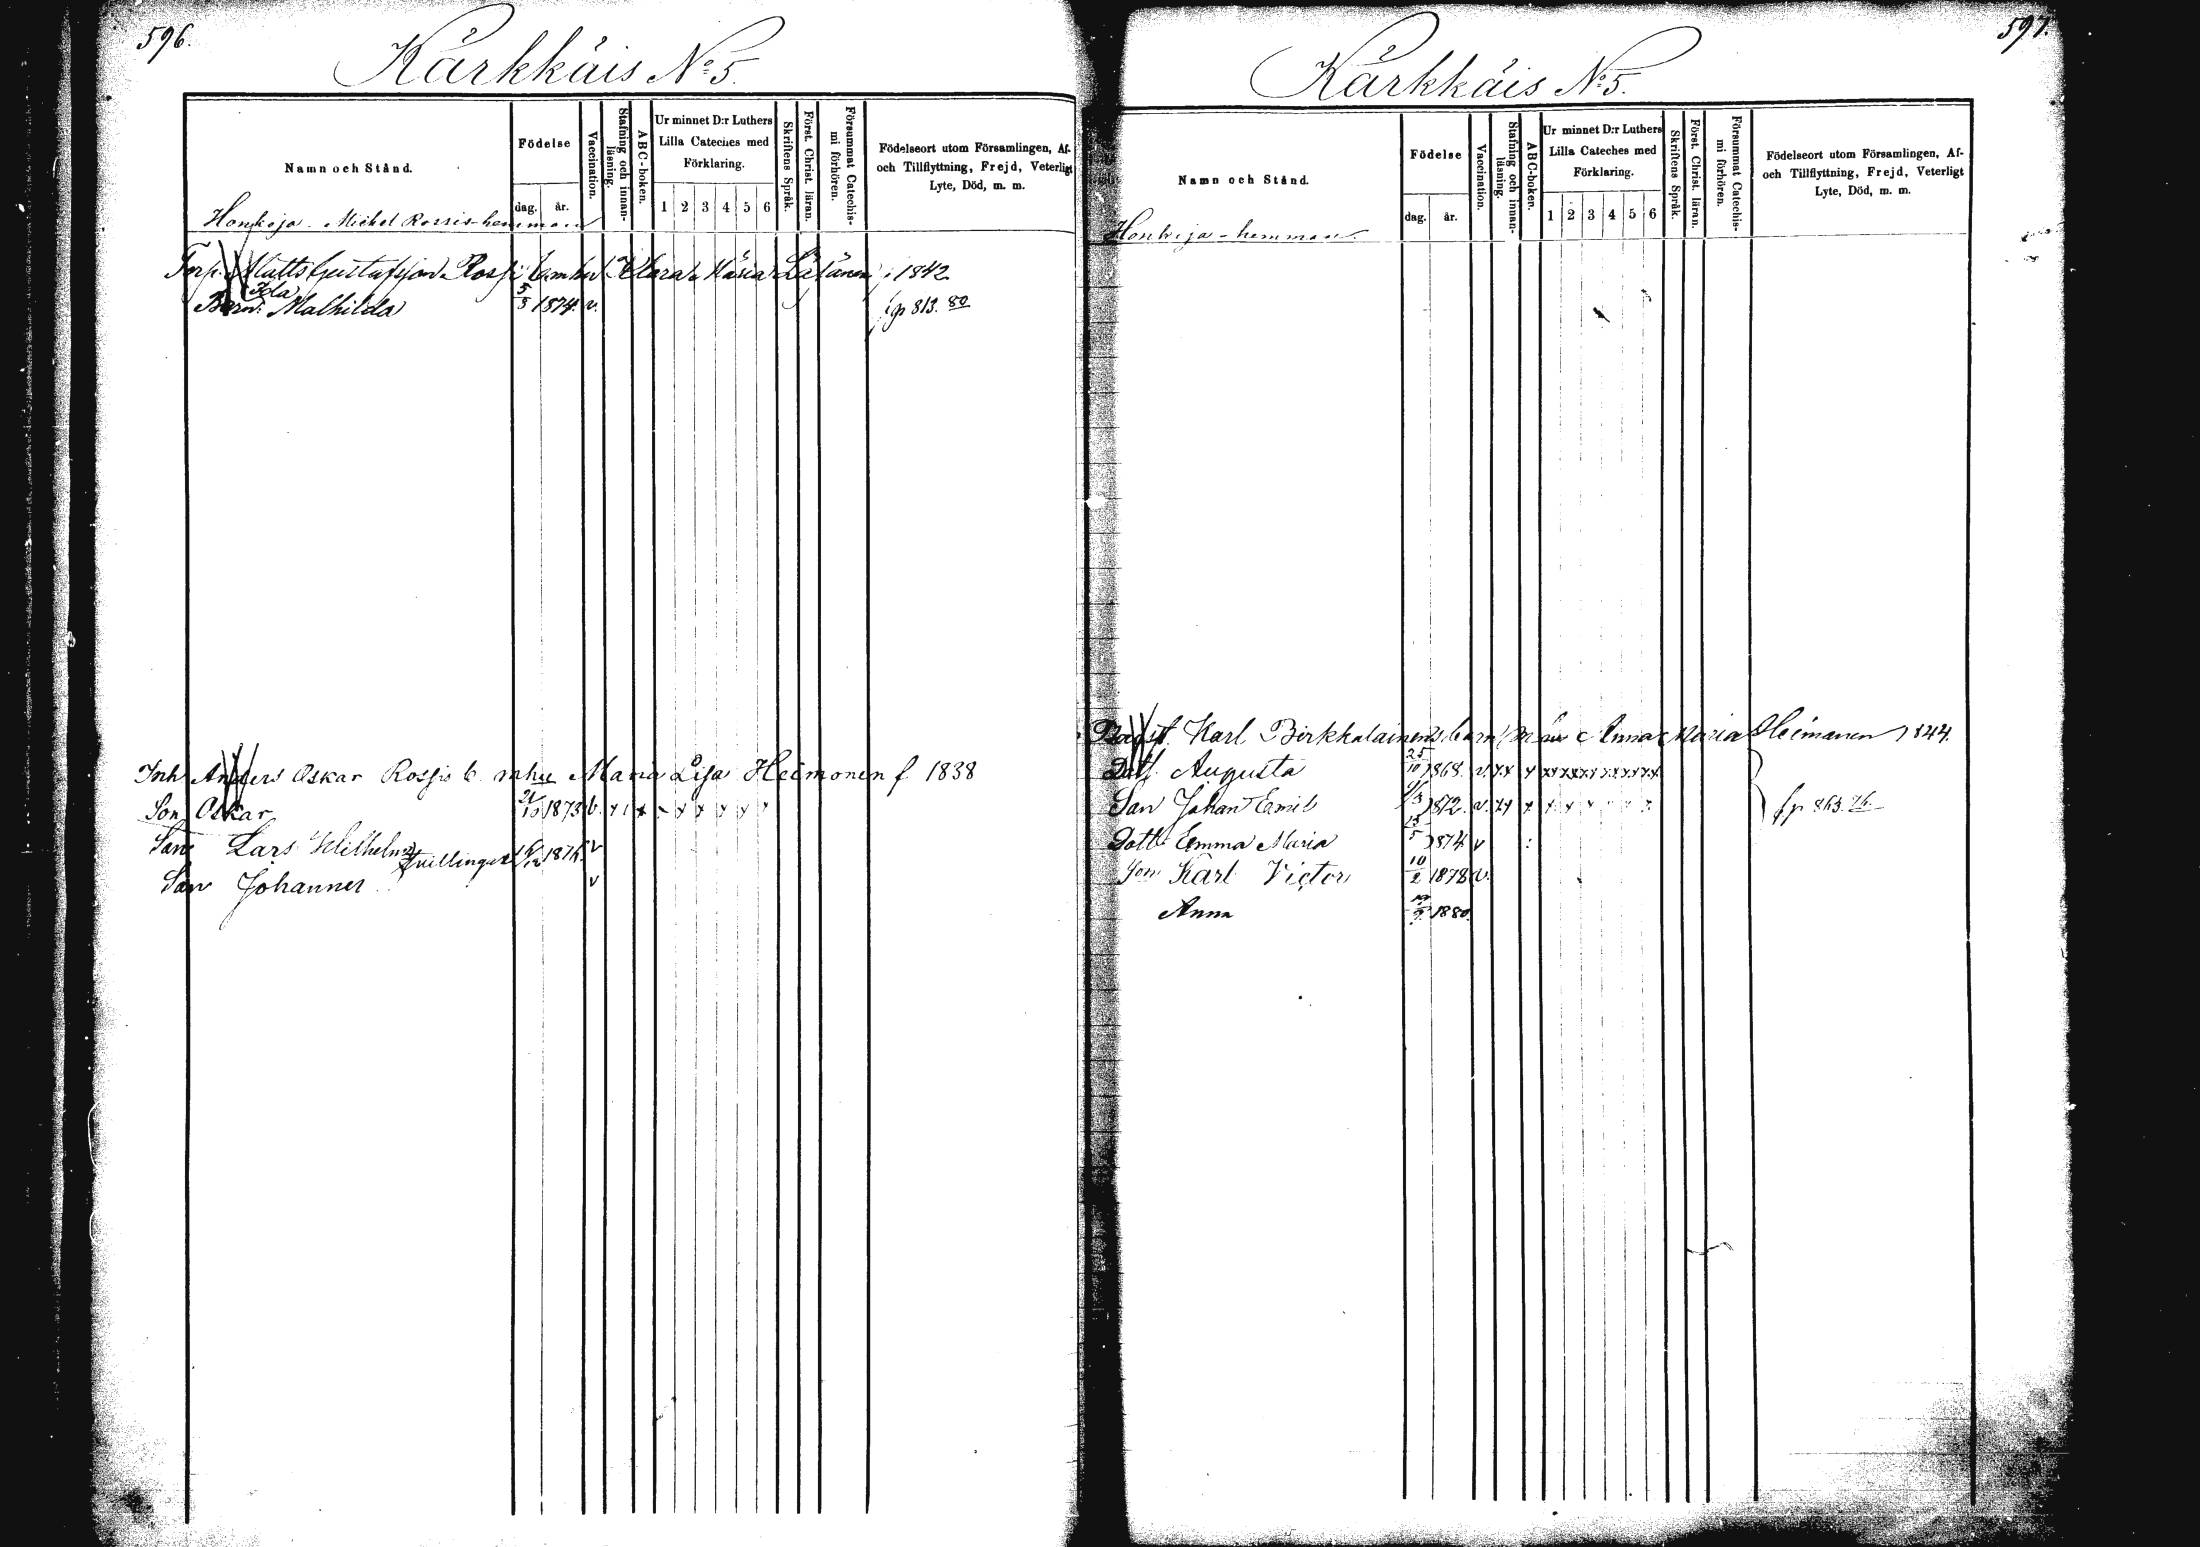 596.
Kärkkäis No 5.
Namn och Stånd.
Födelse
dag. år.
Vaccination.
Stafning och innanläsning.
ABC-boken.
Ur minnet D:r Luthers
Lilla Cateches med
Förklaring.
1 2 3 4 5 6
Skriftens Språk.
Först. Christ. läran.
Försummat Catechismi förhören.
Födelseort utom Församlingen, Af-
och Tillflyttning, Frejd, Veterligt
Lyte, Död, m. m.
Honkoja - Michel Rossis hemman
Torp. Matts Gustafsson Rossi b. m hu Klara Maria 1842
Barn: Ida Mathilda 5/3 1874. v. fp 813. 80
Inh Anders Oskar Rossis b. m hu Maria Lisa Heimonen f 1838
Son Oskar 1873
Son Lars Wilhelm Tvillingar 16/12 1876. v
Son Johannes v
597.
Kärkkäis No 5.
Namn och Stånd.
Födelse
dag. år.
Vaccination.
Stafning och innanläsning.
ABC-boken.
Ur minnet D:r Luthers
Lilla Cateches med
Förklaring.
1 2 3 4 5 6
Skriftens Språk.
Först. Christ. läran.
Försummat Catechismi förhören.
Födelseort utom Församlingen, Af-
och Tillflyttning, Frejd, Veterligt
Lyte, Död, m. m.
Honkoja - hemman.
Karl Birkkalainens barn m hu Anna Maria Heimanen 1844.
Dott. Augusta 25/10 1868. v. xx x xx xx xx xx xx xx
Son Johan Emil 1872. v. xx x fp 863. 76
Dott Emma Maria 13/5 1874 v
Son Karl Victor 10/2 1878 v.
Anna 1880.